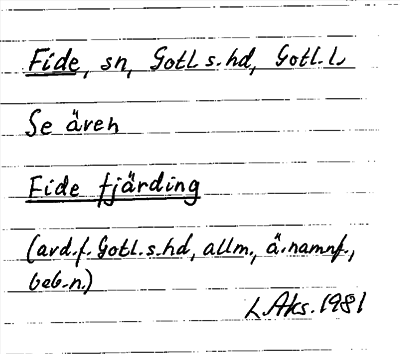 Fide, sn, Gotl s. hd, Gotl. l.
Se även
Fide fjärding
(avd. f. Gotl. s. hd, allm., ä. namnf.,
beb.n.)
L Aks. 1981